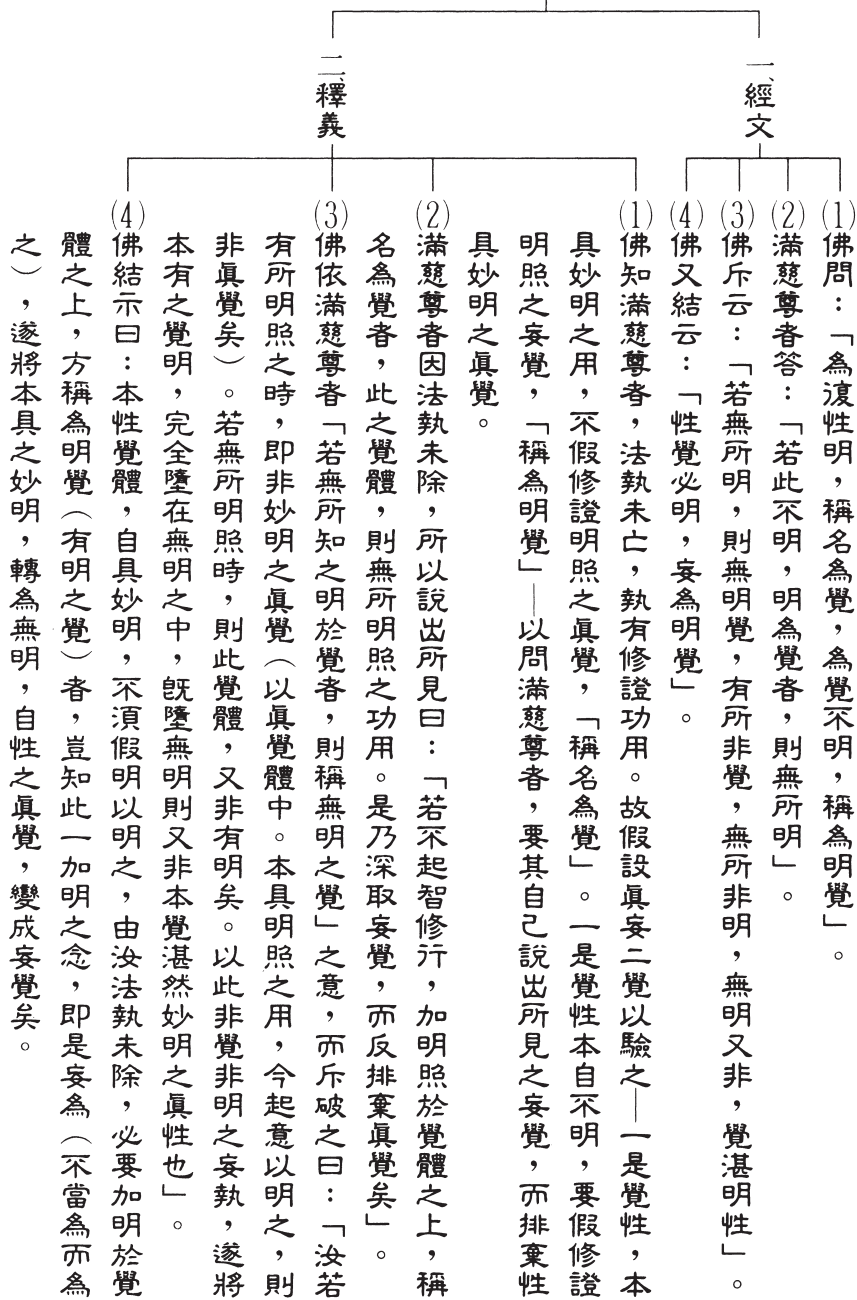 一、經文
(1)佛問：「為復性明，稱名為覺，為覺不明，稱為明覺」。
(2)滿慈尊者答：「若此不明，明為覺者，則無所明」。
(3)佛斥云：「若無所明，則無明覺，有所非覺，無所非明，無明又非，覺湛明性」。
(4)佛又結云：「性覺必明，妄為明覺」。
二、釋義
(1)佛知滿慈尊者，法執未亡，執有修證功用。故假設眞妄二覺以驗之─一是覺性，本
具妙明之用，不假修證明照之眞覺，「稱名為覺」。一是覺性本自不明，要假修證
明照之妄覺，「稱為明覺」─以問滿慈尊者，要其自己說出所見之妄覺，而排棄性
具妙明之眞覺。
(2)滿慈尊者因法執未除，所以說出所見曰：「若不起智修行，加明照於覺體之上，稱
名為覺者，此之覺體，則無所明照之功用。是乃深取妄覺，而反排棄眞覺矣」。
(3)佛依滿慈尊者「若無所知之明於覺者，則稱無明之覺」之意，而斥破之曰：「汝若
有所明照之時，即非妙明之眞覺（以眞覺體中。本具明照之用，今起意以明之，則
非眞覺矣）。若無所明照時，則此覺體，又非有明矣。以此非覺非明之妄執，遂將
本有之覺明，完全墮在無明之中，旣墮無明則又非本覺湛然妙明之眞性也」。
(4)佛結示曰：本性覺體，自具妙明，不須假明以明之，由汝法執未除，必要加明於覺
體之上，方稱為明覺（有明之覺）者，豈知此一加明之念，即是妄為（不當為而為
之），遂將本具之妙明，轉為無明，自性之眞覺，變成妄覺矣。